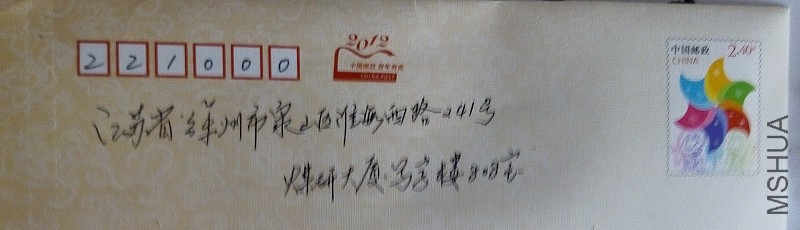 221000
2012
中国邮政 贺年有奖
CHINA POST
中国邮政 2.40元
CHINA
江苏省徐州市泉山区淮海西路241号
煤研大厦写字楼808室
MSHUA